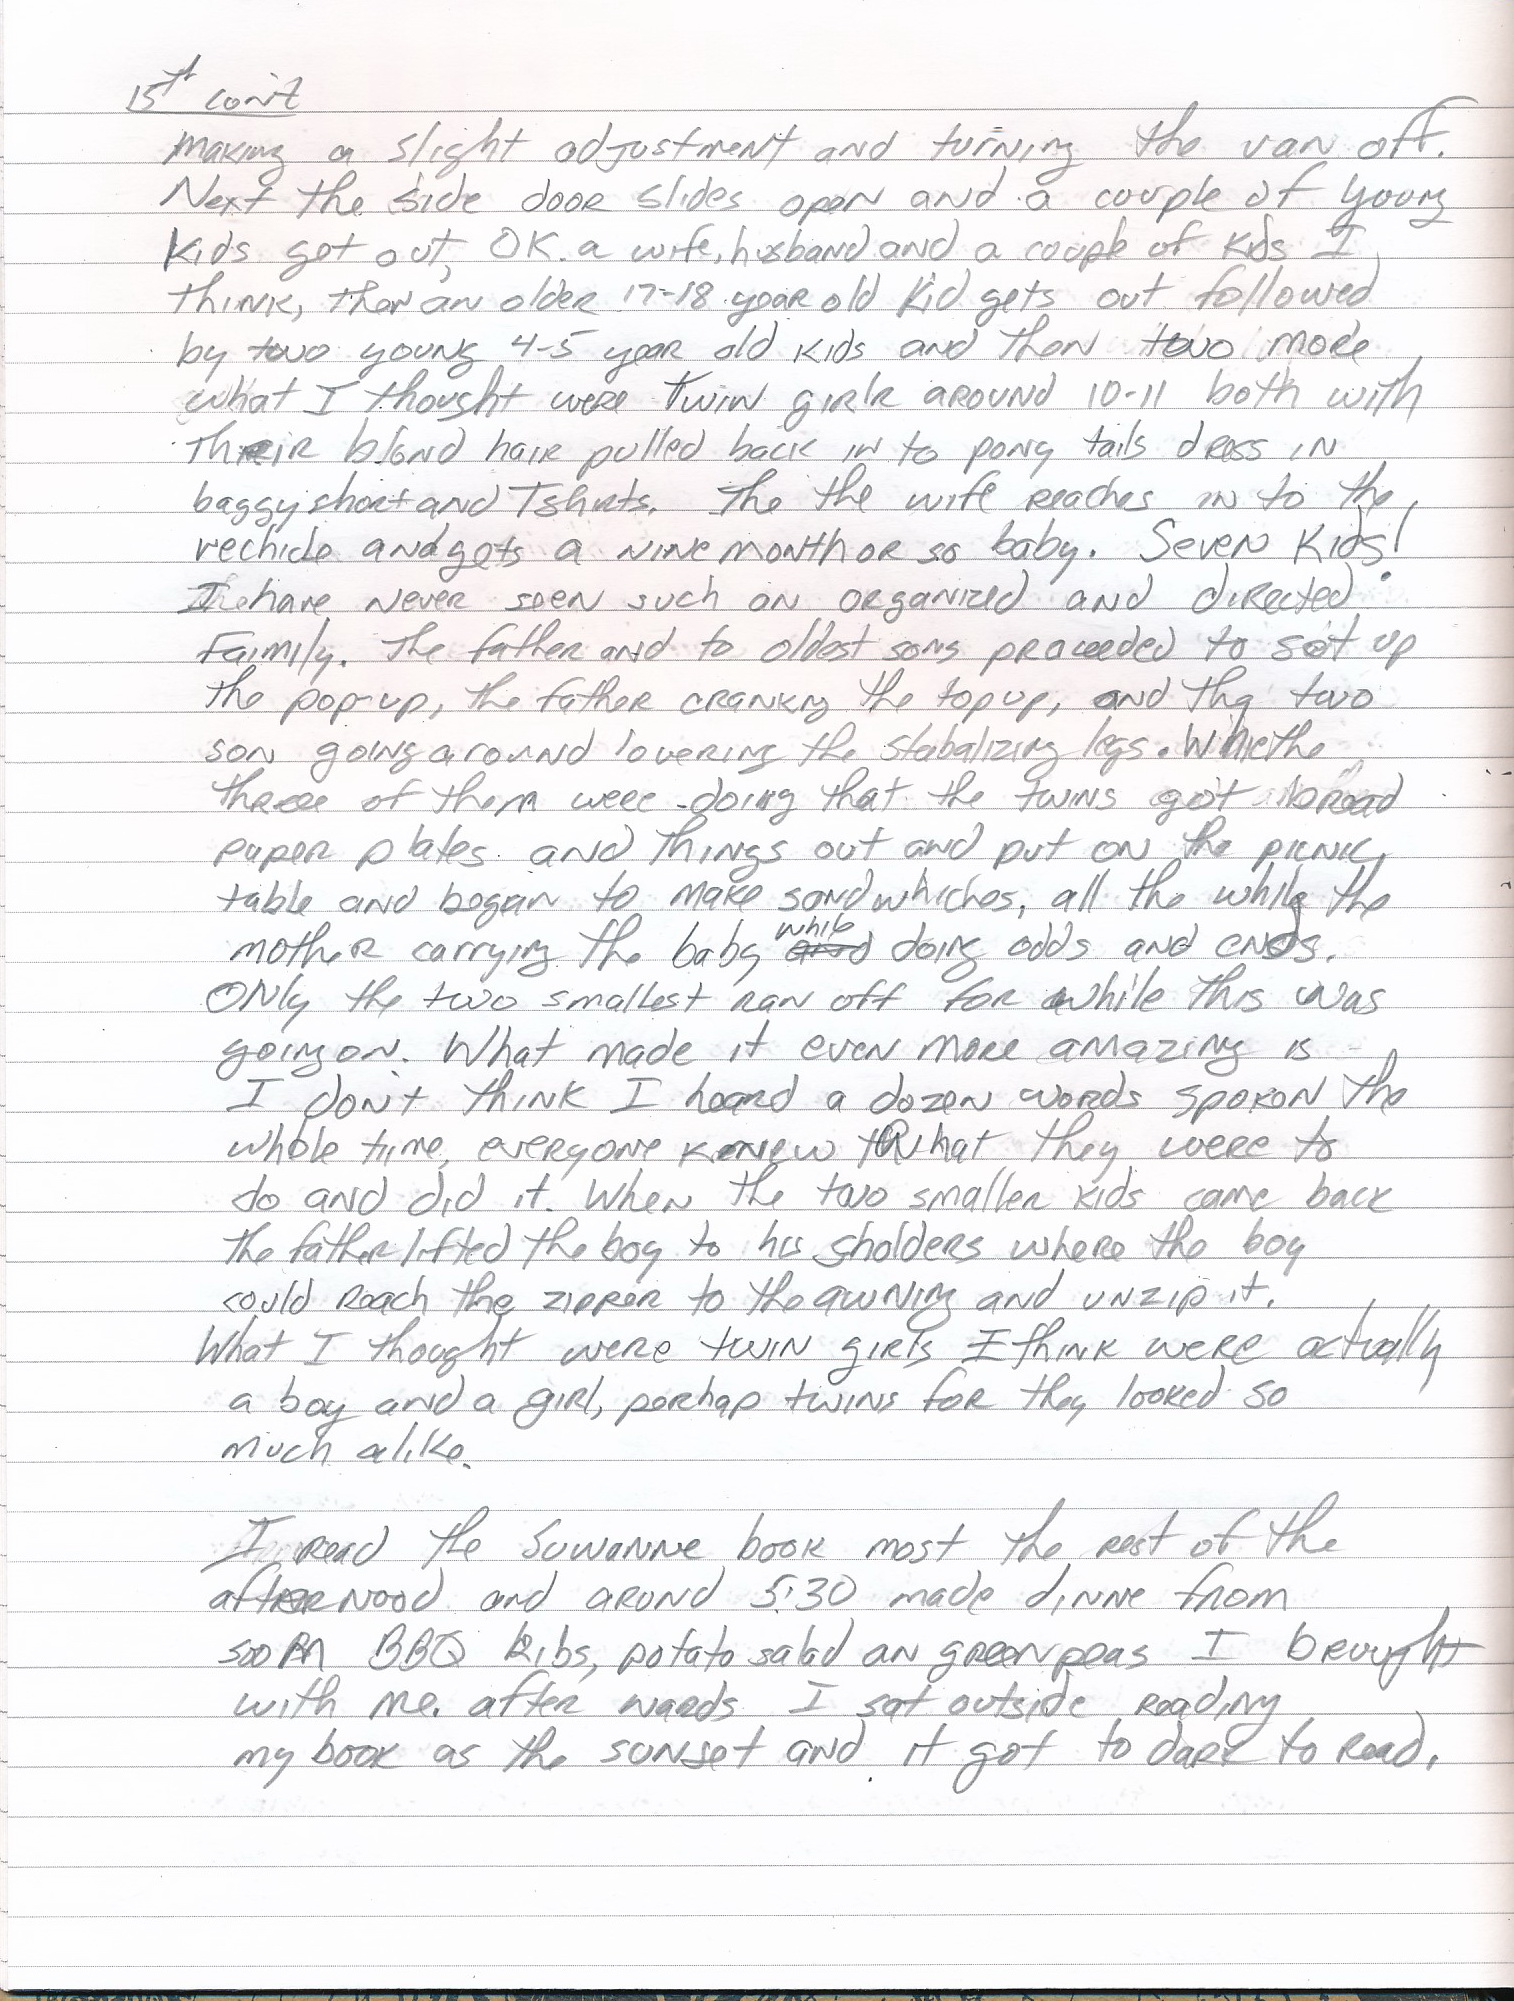 15th con't
making a slight adjustment and turning the van off.
Next the side door slides open and a couple of young
kids get out, OK. a wife, husband and a couple of kids I
think, then an older 17-18 year old kid gets out followed
by two young 4-5 year old kids and then two more
what I thought were twin girls around 10-11 both with
Their blond hair pulled back in to pony tails dress in
baggy short and Tshirts. The the wife reaches in to the
vechicle and gets a nine month or so baby. Seven Kids!
I have never seen such an organized and directed
Faimily. The father and to oldest sons proceeded to set up
the pop-up, the father cranking the top up, and the two
son going around lowering the stabalizing legs. While the
three of them were doing that the twins got bread
paper plates and things out and put on the picnic
table and began to make sandwhiches, all the while the
mother carrying the baby while doing odds and ends.
Only the two smallest ran off for awhile this was
going on. What made it even more amazing is
I don't think I heard a dozen words spoken the
whole time, everyone knew what they were to
do and did it. When the two smaller kids came back
the father lifted the boy to his sholders where the boy
could reach the zipper to the awning and unzip it.
What I thought were twin girls I think were actually
a boy and a girl, perhap twins for they looked so
much alike.
I read the Suwanne book most the rest of the
afternood and arund 5:30 made dinne from
som BBQ Ribs, potato salad an green peas I brought
with me. after wards I sat outside reading
my book as the sunset and it got to dark to read.